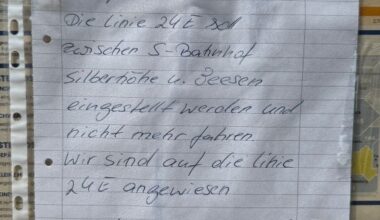 Die Linie 24E soll
zwischen S-Bahnhof
Silberhöhe u. Beesen
eingestellt werden und
nicht mehr fahren
Wir sind auf die Linie
24E angewiesen